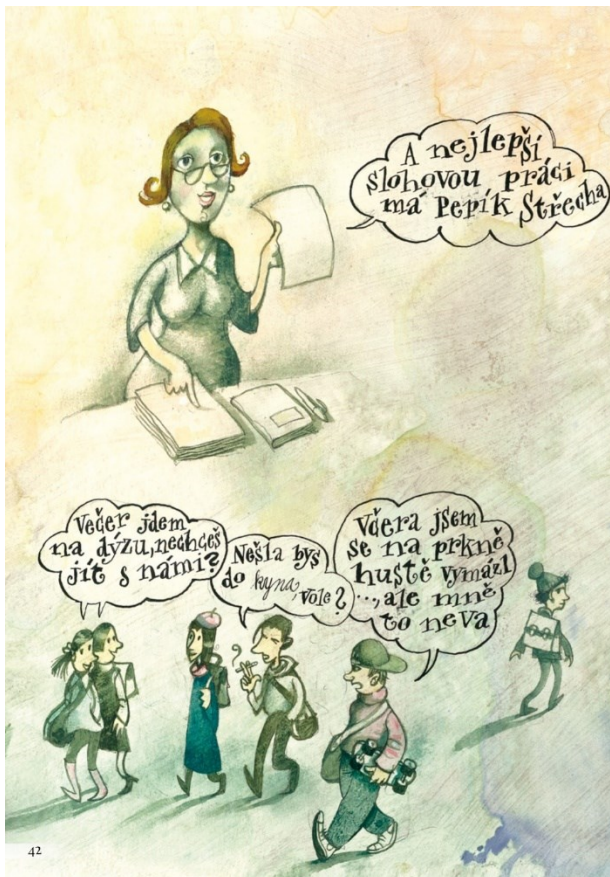 A nejlepší
slohovou práci
má Pepík Střecha
Večer jdem
na dýzu, nechceš
jít s námi?
Nešla bys
do kyna, vole?
Včera jsem
se na prkně
hustě vymázl
..., ale mně
to neva
42